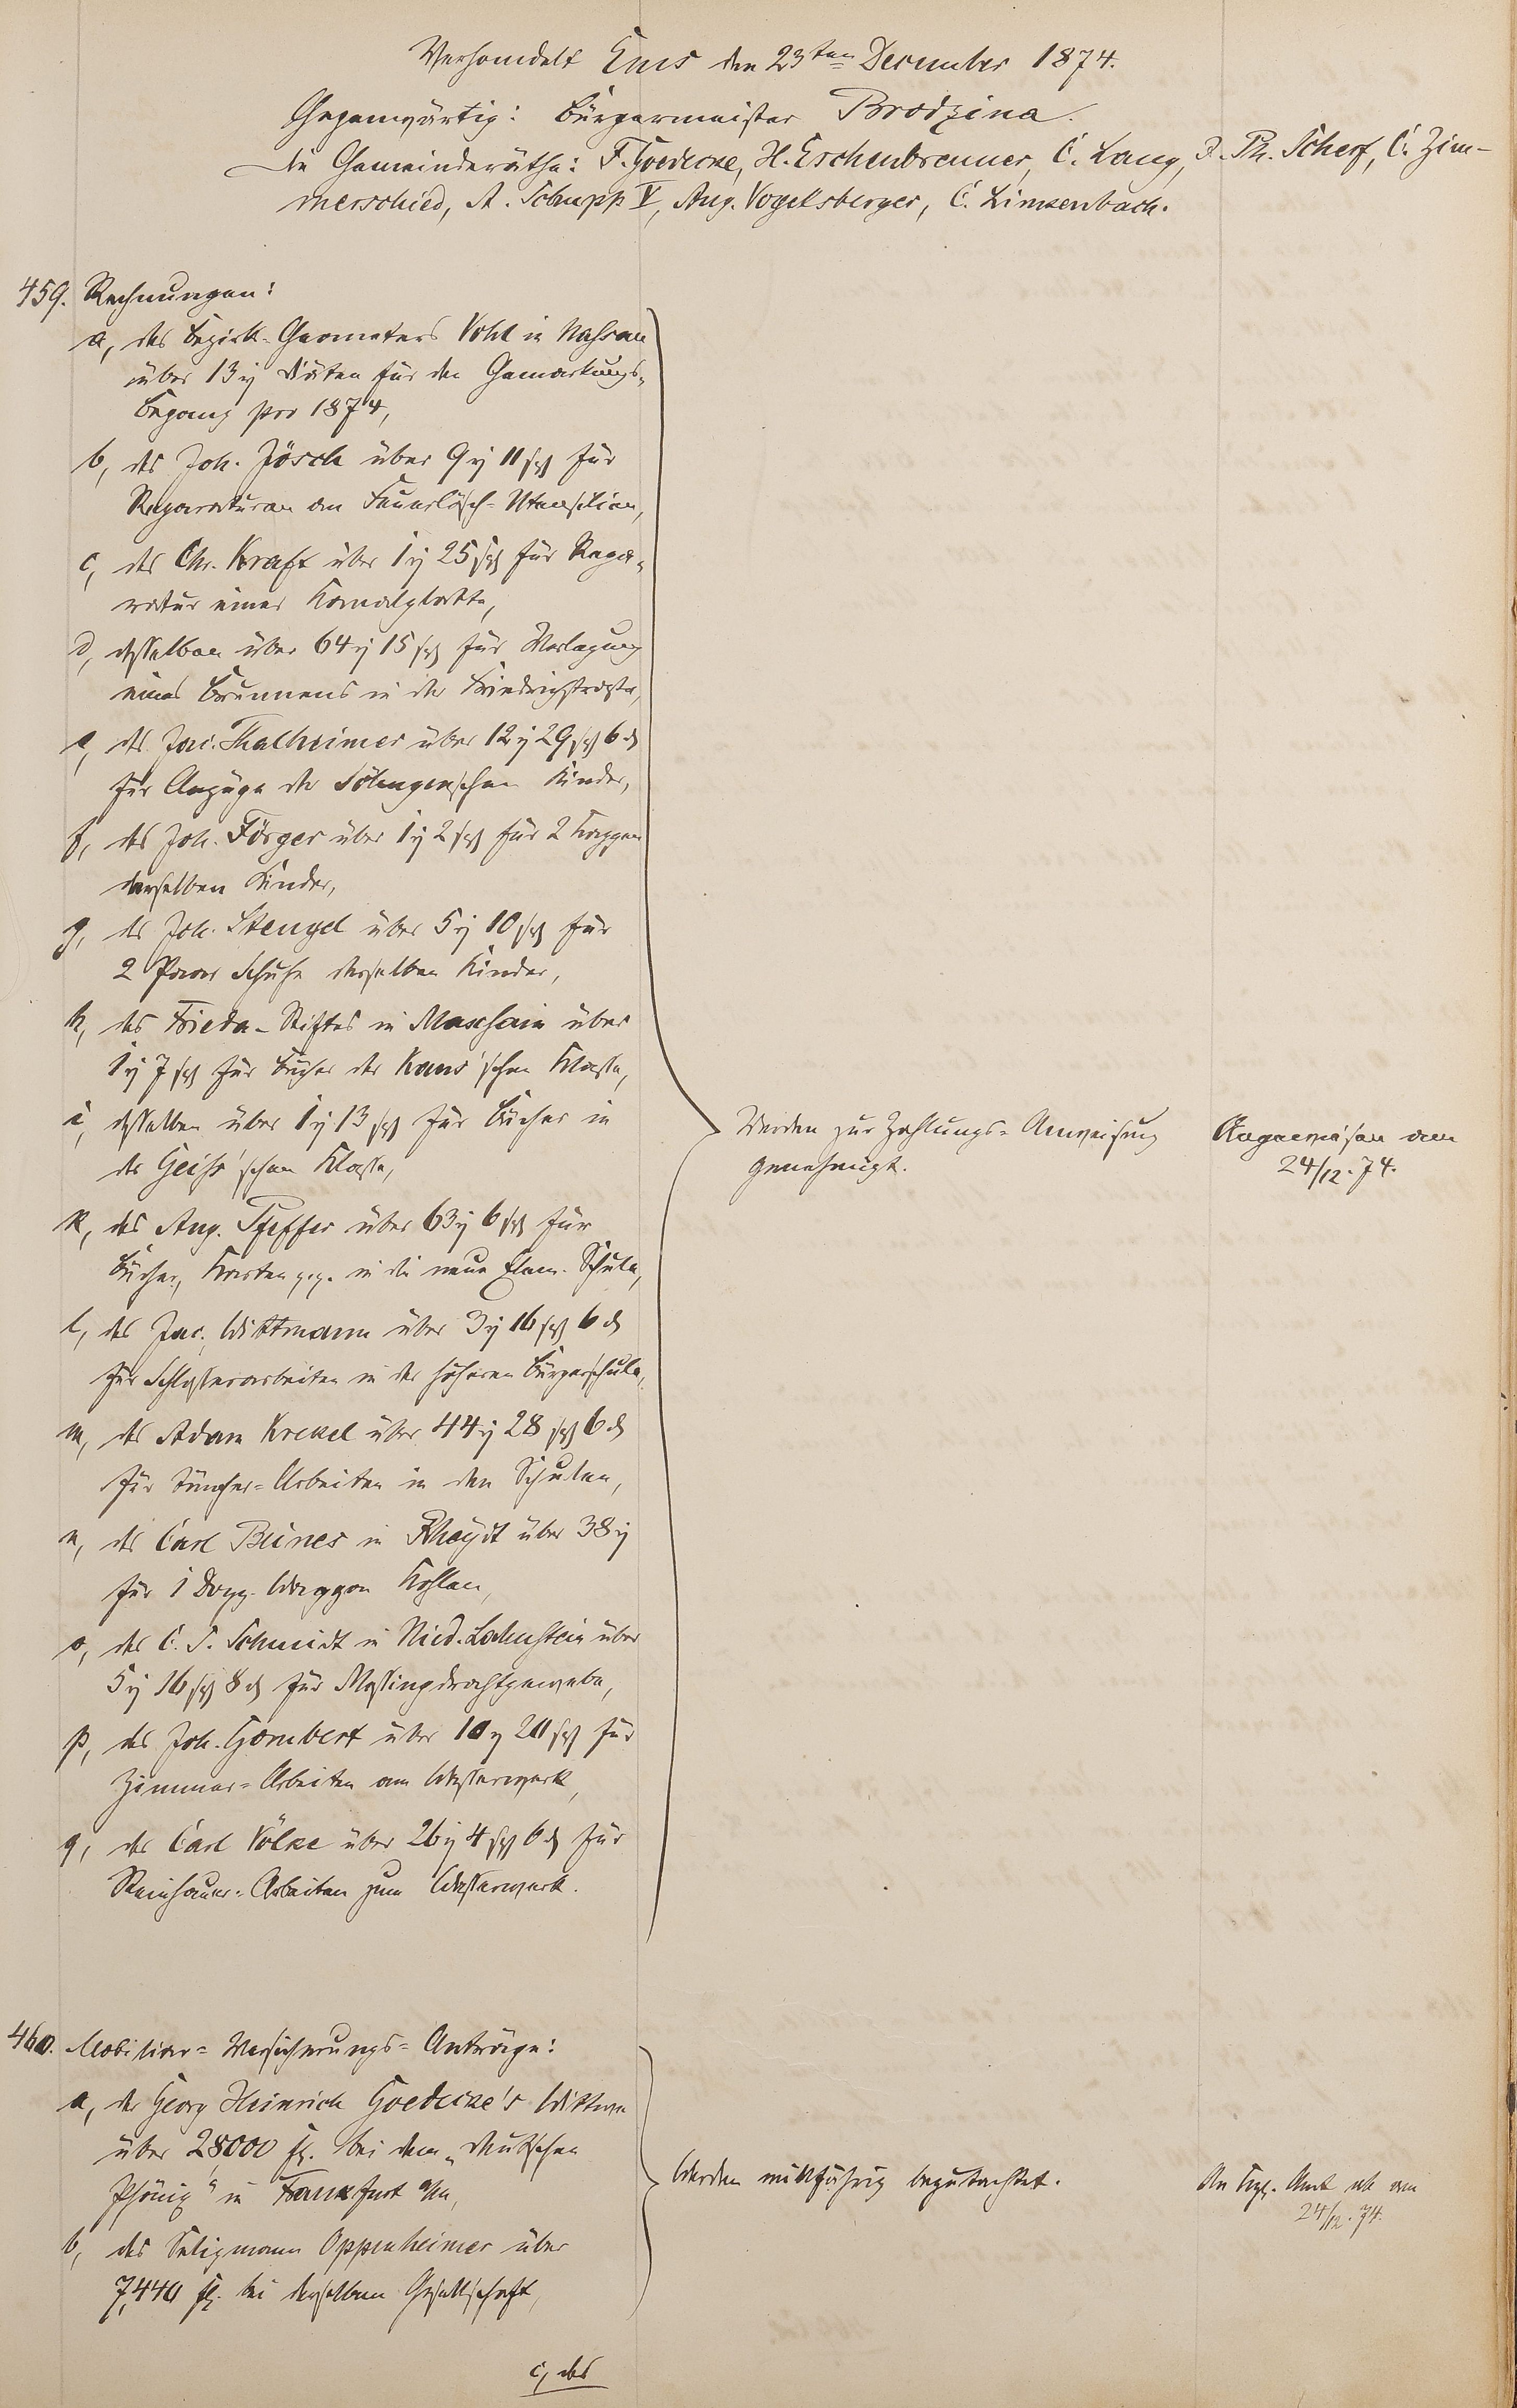 Verhandelt Ems den 23ten December 1874.
Gegenwärtig: Bürgermeister Brodzina.
die Gemeinderäthe: F. Goedecke, H. Eschenbrenner, C. Lang, J. Ph. Scherf, C. Zim-
merschied, A. Schupp V, Aug. Vogelsberger, C. Linkenbach.
459. Rechnungen:
a, des Bezirk-Geometers Vohl in Nassau
über 13 rt Diäten für den Gemarkungs-
begang pro 1874,
b, des Joh. Jösch über 9 rt 11 sgr für
Reparaturen an Feuerlösch-Utensilien,
c, des Chr. Kraft über 1 rt 25 sgr für Repa-
ratur einer Kanalplatte,
d, desselben über 64 rt 15 sgr für Verlegung
eines Brunnens in der Friedrichstraße,
e, des Jac. Thalheimer über 12 rt 29 sgr 6 d
für Anzüge der Söhngen'schen Kinder,
f, des Joh. Förger über 1 rt 2 sgr für 2 Kappen
derselben Kinder,
g, des Joh. Stengel über 5 rt 10 sgr für
2 Paar Schuhe derselben Kinder,
h, des Frieda-Stiftes in Maxsain über
1 rt 7 sgr für Bücher der Kaus'schen Klasse,
i, desselben über 1 rt 13 sgr für Bücher in
der Geiß'schen Klasse,
k, des Aug. Pfeffer über 63 rt 6 sgr für
Bücher, Karten p.p. in die neue Elem. Schule,
l, des Jac. Wittmann über 3 rt 16 sgr 6 d
für Schlosserarbeiten in der höheren Bürgerschule,
m, des Adam Krekel über 44 rt 28 sgr 6 d
für Tüncher-Arbeiten in den Schulen,
n, des Carl Bünes in Rheydt über 38 rt
für 1 Dopp. Waggon Kohlen,
o, des C. S. Schmidt in Nied. Lahnstein über
5 rt 16 sgr 8 d für Messingdrahtgewebe,
p, des Joh. Gombert über 10 rt 20 sgr für
Zimmer-Arbeiten am Wasserwerk,
q, des Carl Völke über 26 rt 4 sgr 6 d für
Steinhauer-Arbeiten zum Wasserwerk.
Werden zur Zahlungs-Anweisung
genehmigt.
Angewiesen am
24/12. 74.
460. Mobiliar-Versicherungs-Anträge:
a, der Georg Heinrich Goedecke's Wittwe
über 28000 fl. bei dem „deutschen
Phönix" in Frankfurt a/M,
b, des Seligmann Oppenheimer über
7,440 fl. bei derselben Gesellschaft,
Werden willfährig begutachtet.
An Kgl. Amt ab am
24/12. 74.
c, des